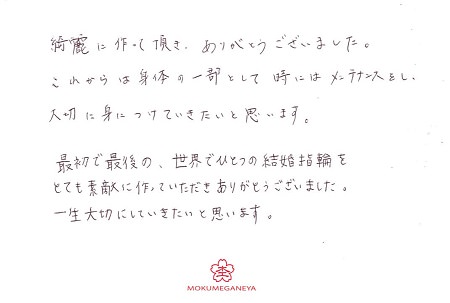 綺麗に作って頂き、ありがとうございました。
これからは身体の一部として時にはメンテナンスをし、
大切に身につけていきたいと思います。
最初で最後の、世界でひとつの結婚指輪を
とても素敵に作っていただきありがとうございました。
一生大切にしていきたいと思います。
MOKUMEGANEYA